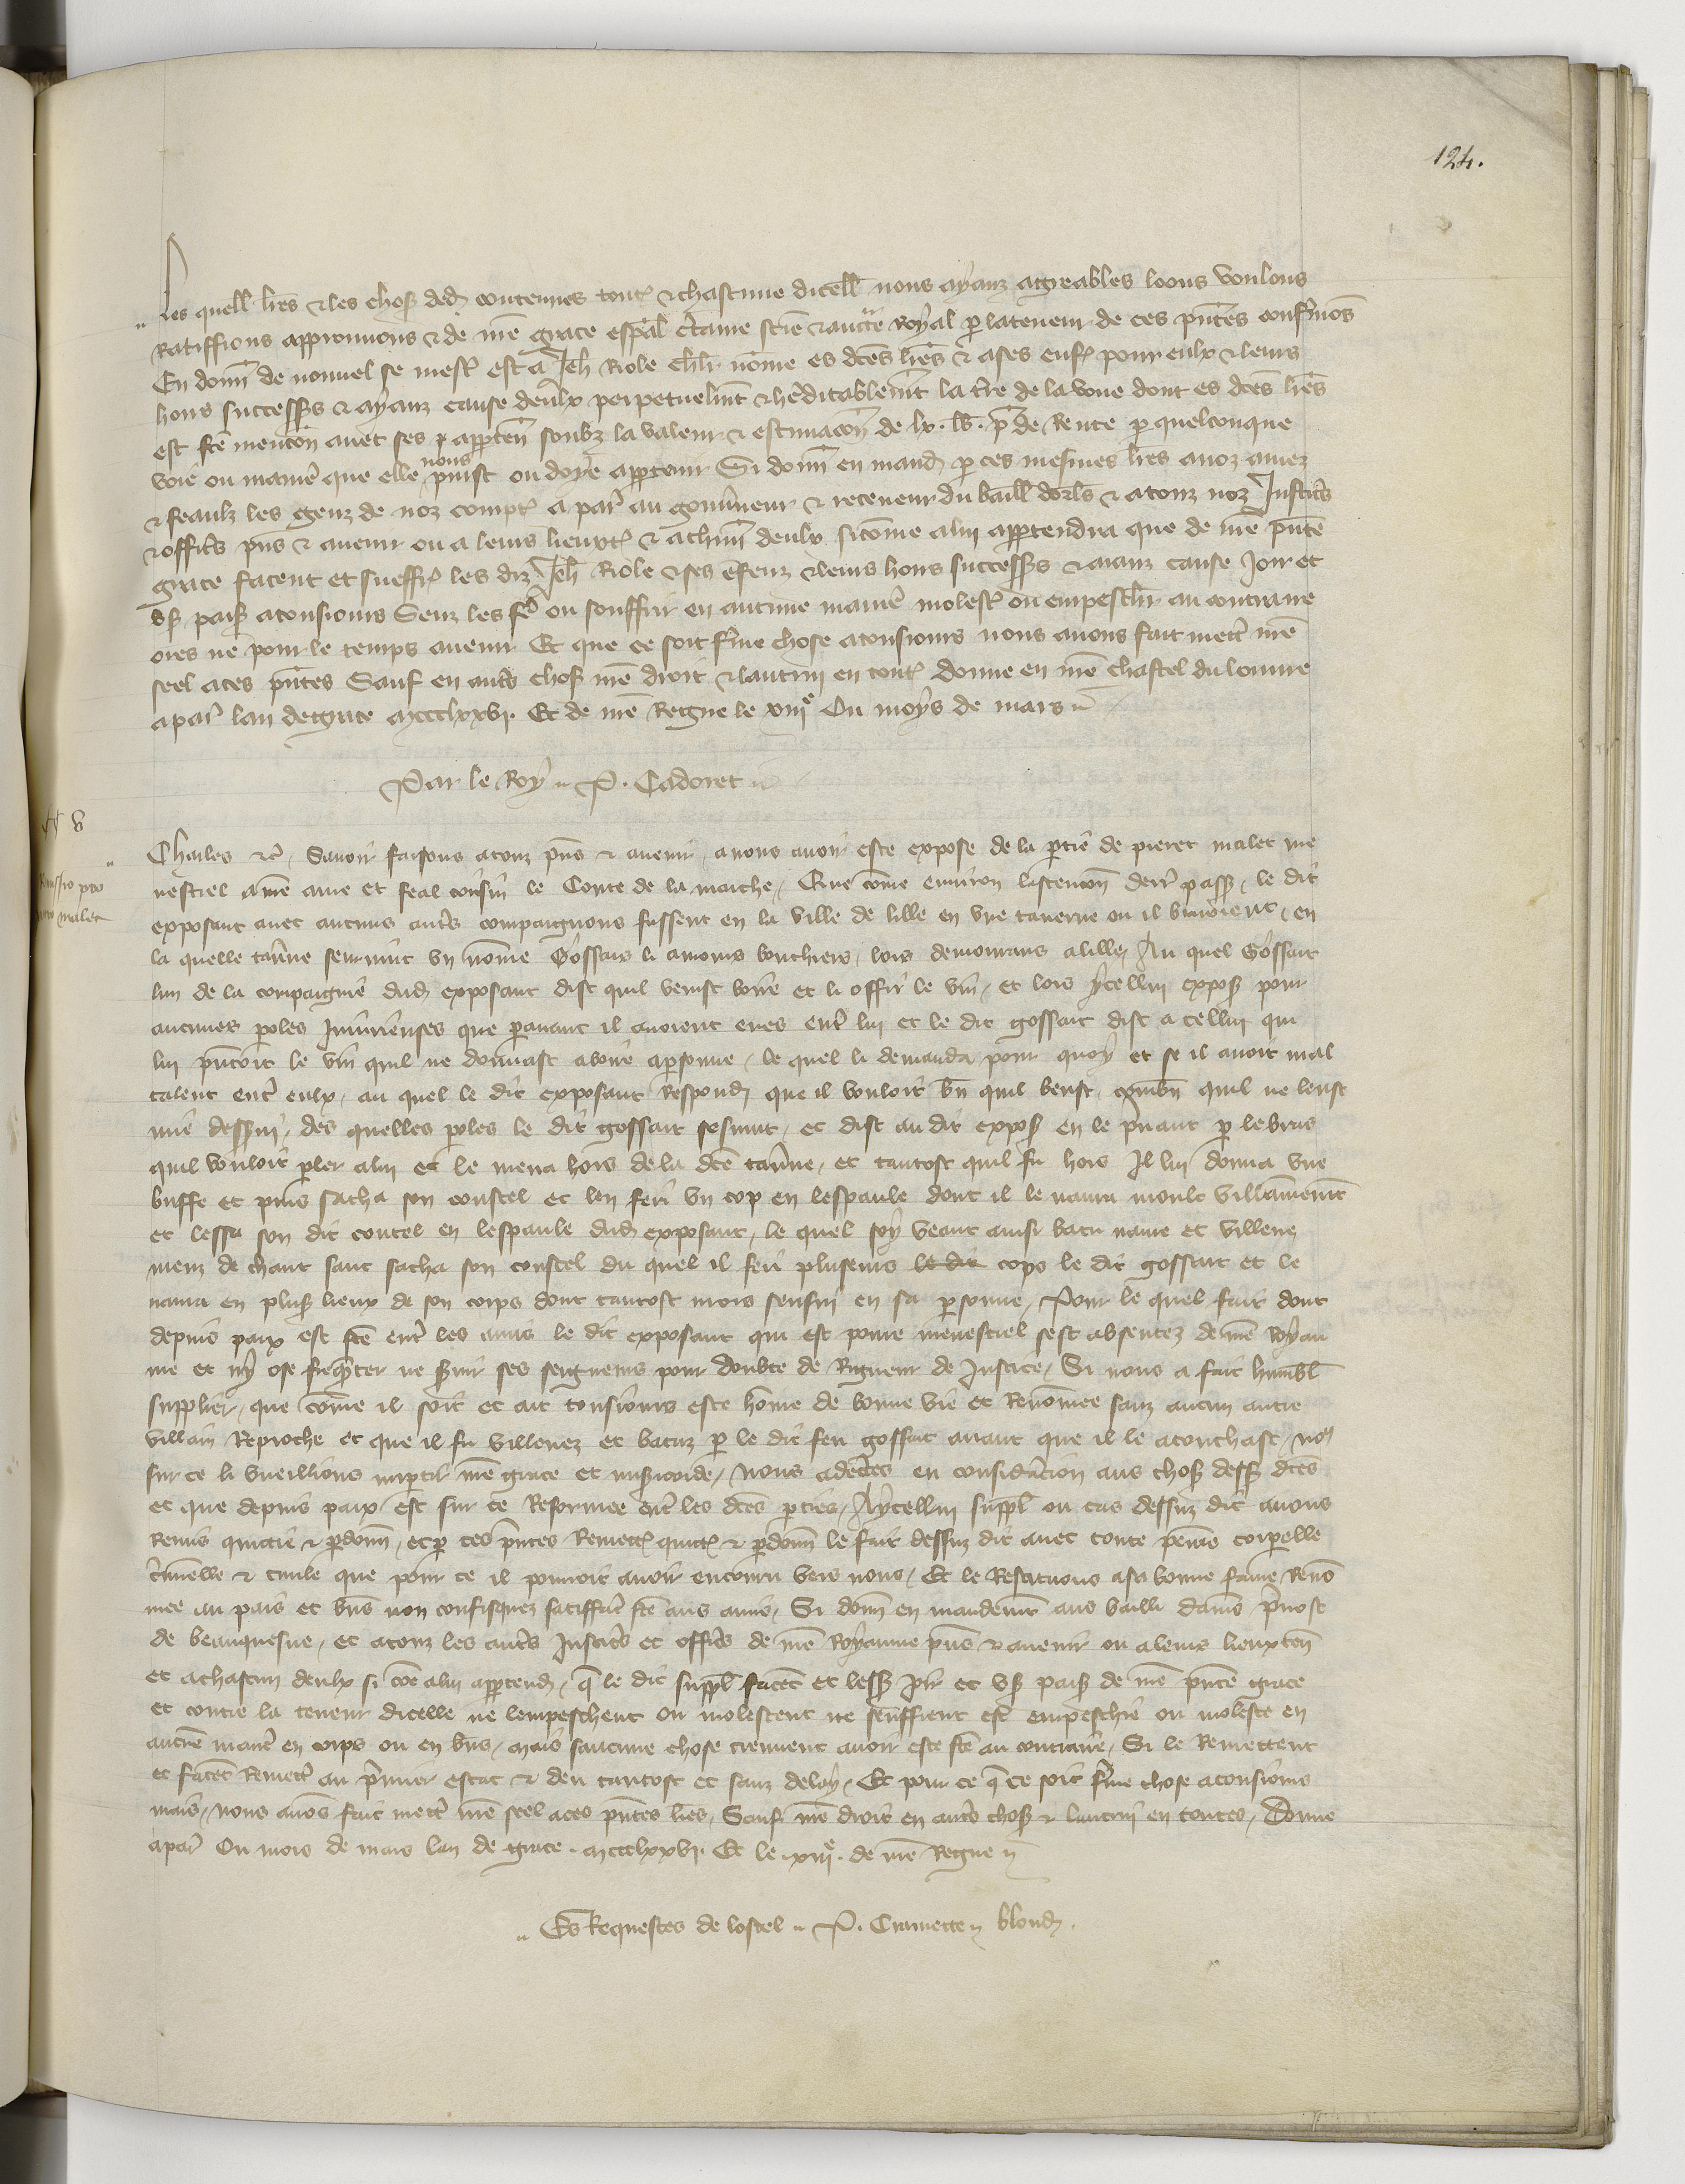 124.
Les quell lres & les chos ded contenues tout & chascune dicell nous ayanz agreables loons voulons
Ratiffions approuvons & de nre grace espal ctaine scien & aucte Royal p la teneur de ces pntes confmos
En donn de nouvel se mest est a Jeh Riole chlr nome es dces lres & a ses enf pour eulx & leurs
hoirs successrs & ayanz cause deulx perpetuelmt & heditablemt la tre de la voue dont es dces lres
est fce mencon avec ses appten soubz la valeur & estimacon de lx. lb. p de Rente p quelconque
voie ou manie que elle nous puist ou doye apptenir Si donn en mand p ces mesmes lres a noz amez
& feaulx les genz de noz compt a par au gouvneur & receveur du baill dorls & a touz noz Justics
& offics pns & avenir ou a leurs lieuxt & a chun deulx sicome a lui apptendra que de nre pnte
grace facent et sueffr les diz Jeh Riole & ses enfenz & leurs hoirs successrs & aianz cause joir et
us pais a tousiours Senz les fe ou souffrir en aucune manie molest ou empeschr au contraire
ores ne pour le temps avenir Et que ce soit fme chose a tousiours nous avons fait mett nre
seel a ces pntes Sauf en auts chos nre droit & lautrui en tout donne en nre chastel du louvre
a par lan de grace mccclxxvi. Et de nre Regne le xiiie Ou moys de mars
Par le Roy P. Cadoret
Remissio pro
malet
Charles &c. Savoir faisons a touz pns & avenir, a nous avoir este expose de la ptie de pieret malet me
nestrel a nre ame et feal cousin le Conte de la marche, Que come environ lascencon derr pass, le dit
exposant avec aucuns auts compaignons fussent en la ville de lille en une taverne ou il buvoient, en
la quelle tavne seurvint un nome Gossars li amoris bouchiers, lors demourans a lille, Au quel Gossart
lun de la compaignie dud exposant dist quil venist boire et li offri le vin, et lors ycellui expos pour
aucunes poles Injurieuses que pavant il avoient eues ent lui et le dit gossart dist a cellui qui
lui pntoit le vin quil ne donnast a boire a psonne, le quel li demanda pour quoy et se il avoit mal
talent ent eulx, au quel le dit exposant Respond que il vouloit bn quil beust, combn quil ne leust
mie dessvi, des quelles poles le dit gossart sesmut, et dist au dit expos en le pnant p le bras
quil vouloit pler a lui et le mena hors de la dce tavne, et tantost quil fu hors Il lui donna une
buffe et puis sacha son coustel et len feri un cop en lespaule dont il le navra moult villainement
et lessa son dit coutel en lespaule dud exposant, le quel soy veant ainsi batu navre et villene
menz de chaut sanc sacha son coustel du quel il feri plusieurs le dit cops le dit gossart et le
navra en plus lieux de son corps dont tantost mors sensui en sa psonne, Pour le quel fait dont
depuis paix est fce ent les amis le dit exposant qui est povre menestrel sest absentez de nre Royau
me et ny ose frequenter ne svir ses seigneurs pour doubte de Rigueur de Justice, Si nous a fait humbl
supplier, que come il soit et ait tousiours este home de bonne vie et Renomee sanz aucun autre
villain Reproche et que il fu villenez et batuz p le dit feu gossart avant que il le atouchast, nous
sur ce li vueillions imptir nre grace et misicorde, Nous adectes en consideracion aus chos dess dces
et que depuis paix est sur ce Reformee ent les dces pties, A ycellui suppl ou cas dessuz dit avons
Remis quictie & pdonn, et p ces pntes Remett quict & pdonn le fait dessuz dit avec toute peine corpelle
cminelle & civile que pour ce il pourroit avoir encouru vers nous, Et le Restituons a sa bonne fame Reno
mee au pais et bns non confisquez satisfact fce aus amis, Si donn en mandement aus bailli damiens pvost
de beauquesne, et a touz les auts Justics et offics de nre Royaume pns & avenir ou a leurs lieuxten
et a chascun deulx si coe a lui apptend, q le dit suppl facet et less joir et us pais de nre pnte grace
et contre la teneur dicelle ne lempeschent ou molestent ne seuffrent est empeschie ou moleste en
autre manie en corps ou en bns, Mais saucune chose treuvent avoir este fce au contraire, Si le Remettent
et facet Remett au pmier estat & deu tantost et sanz delay, Et pour ce q ce soit fme chose a tousiours
mais, nous avos fait mett nre seel a ces pntes lres, Sauf nre droit en auts chos & lautrui en toutes, Donne
a par Ou mois de mars lan de grace .mccclxxvi. Et le .xiiie. de nre Regne
Es Requestes de lostel P. Cramette blond.